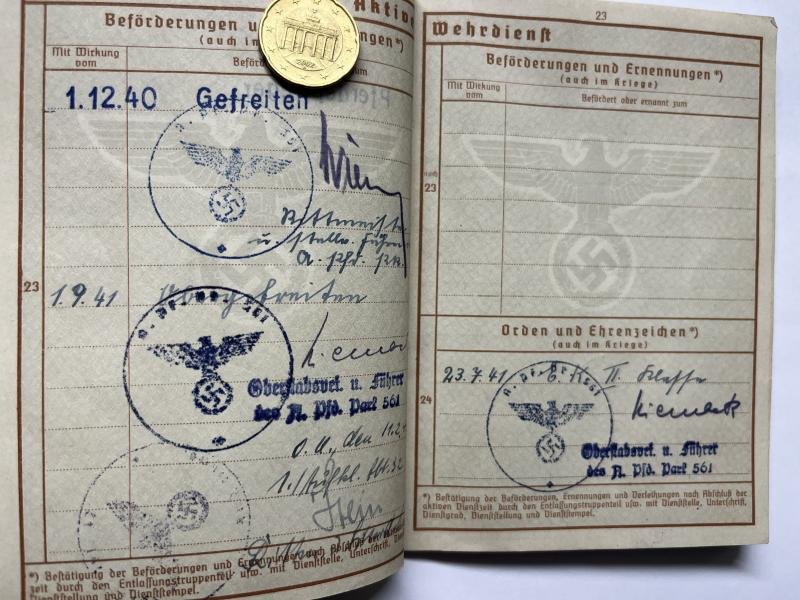 Aktive
Beförderungen u
(auch im
ngen*)
Mit Wirkung
vom
Beför
zum
1.12.40 Gefreiten
A. Pf. 561
Rittmeister
u. stellv. Führer
A. Pfd. Prk.
23
1.9.41 Obergefreiten
Oberstabsvet. u. Führer
des A. Pfd. Park 561
O.U., den 11.2.
1./Aufkl. Abt. 32
*) Bestätigung der Beförderungen und Ernennungen nach Abschluß der
zeit durch den Entlassungstruppenteil usw. mit Dienststelle, Unterschrift, Dienst
Dienststellung und Dienststempel.
23
Wehrdienst
Beförderungen und Ernennungen*)
(auch im Kriege)
Mit Wirkung
vom
Befördert oder ernannt zum
noch
23
Orden und Ehrenzeichen*)
(auch im Kriege)
23.7.41 E.K. II. Klasse
24
Oberstabsvet. u. Führer
des A. Pfd. Park 561
*) Bestätigung der Beförderungen, Ernennungen und Verleihungen nach Abschluß der
aktiven Dienstzeit durch den Entlassungstruppenteil usw. mit Dienststelle, Unterschrift,
Dienstgrad, Dienststellung und Dienststempel.